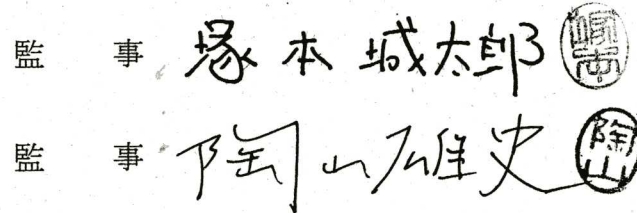 監事 塚本城太郎 塚本
監事 陶山雄史 陶山